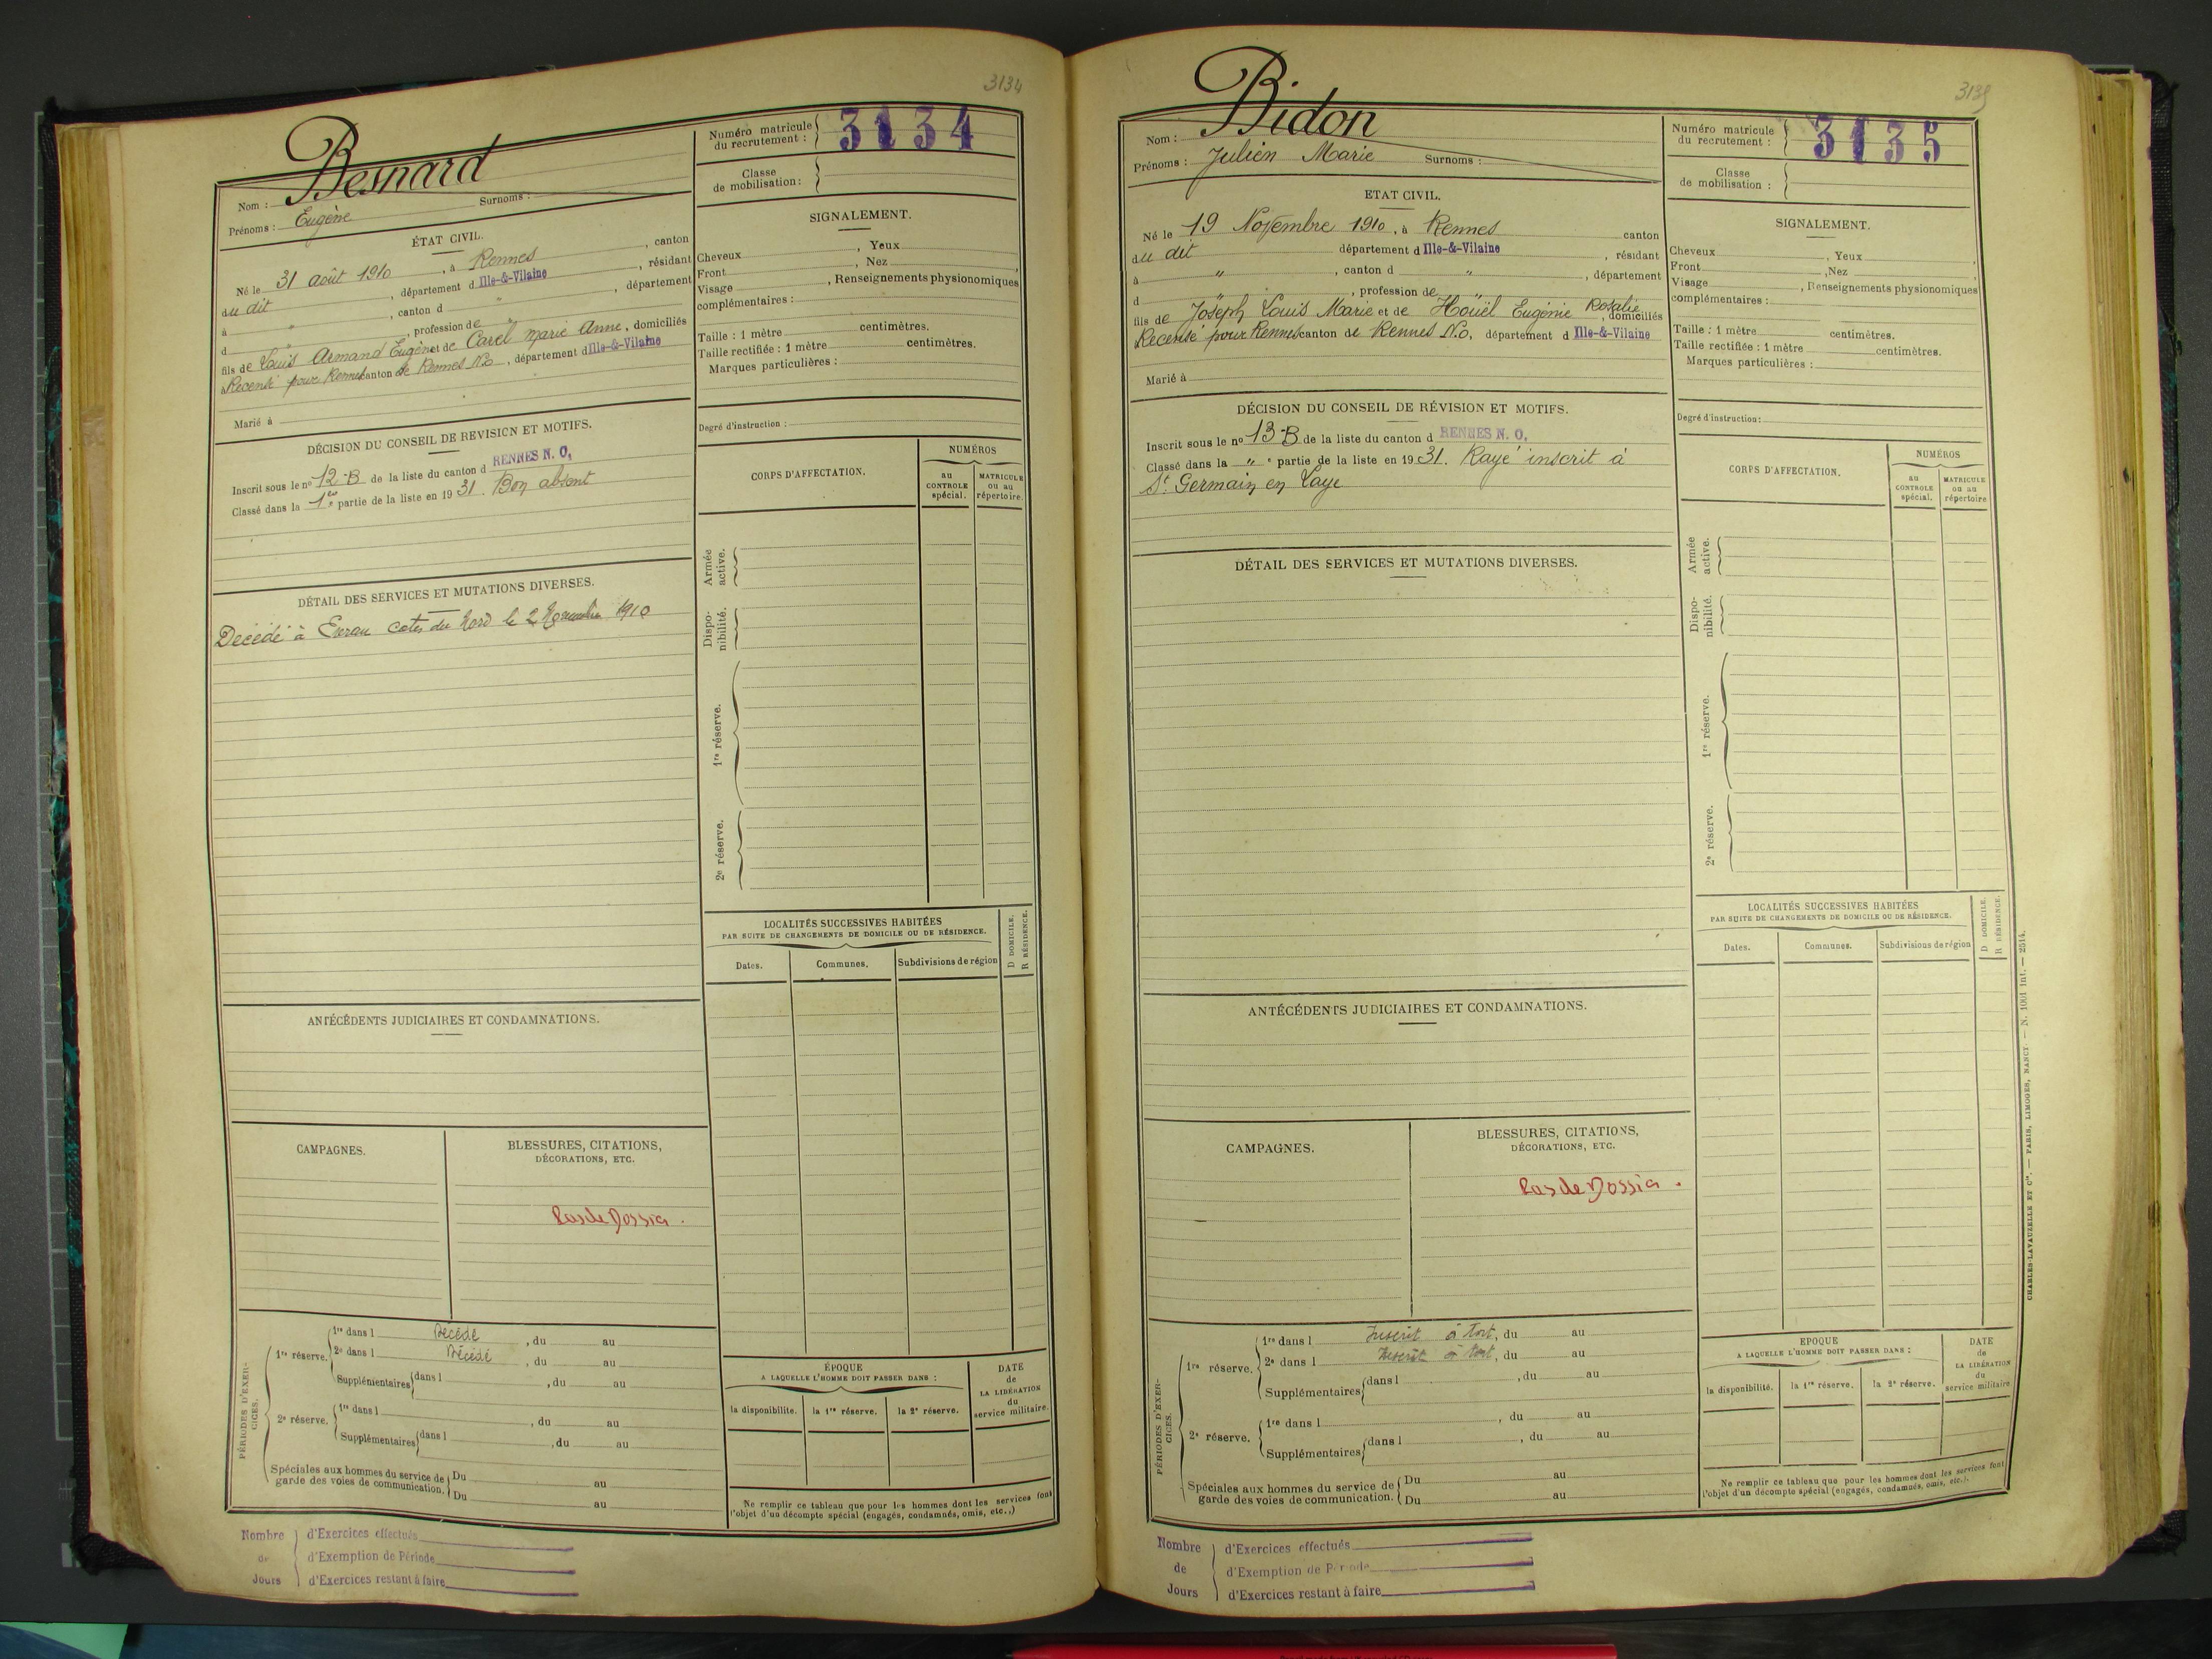 3134
Besnard
Nom :
Surnoms :
Prénoms : Eugène
Numéro matricule du recrutement : 3134
Classe de mobilisation :
ÉTAT CIVIL.
Né le 31 août 1910, à Rennes, canton
du dit, département d Ille-&-Vilaine, résidant
à ", canton d ", département
d , profession de "
fils de Louis Armand Eugène et de Carel Marie Anne, domiciliés
Recensé pour Rennes canton de Rennes N.O, département d Ille-&-Vilaine
Marié à
SIGNALEMENT.
Cheveux , Yeux
Front , Nez
Visage , Renseignements physionomiques
complémentaires :
Taille : 1 mètre centimètres.
Taille rectifiée : 1 mètre centimètres.
Marques particulières :
Degré d'instruction :
DÉCISION DU CONSEIL DE REVISION ET MOTIFS.
Inscrit sous le no 12-B de la liste du canton d RENNES N. O,
Classé dans la 1re partie de la liste en 1931. Bon absent
DÉTAIL DES SERVICES ET MUTATIONS DIVERSES.
Décédé à Evran cotes du Nord le 2 Novembre 1910
CORPS D'AFFECTATION.
NUMÉROS
au CONTROLE spécial.
MATRICULE ou au répertoire
Armée active.
Dispo-nibilité.
1re réserve.
2e réserve.
LOCALITÉS SUCCESSIVES HABITÉES
PAR SUITE DE CHANGEMENTS DE DOMICILE OU DE RÉSIDENCE.
D DOMICILE.
R RÉSIDENCE.
Dates. Communes. Subdivisions de région
ANTÉCÉDENTS JUDICIAIRES ET CONDAMNATIONS.
CAMPAGNES.
BLESSURES, CITATIONS,
DÉCORATIONS, ETC.
Pas de Dossier.
PÉRIODES D'EXER-CICES.
1re réserve.
1re dans l Décédé, du au
2e dans l Décédé, du au
Supplémentaires dans l , du au
2e réserve.
1re dans l , du au
Supplémentaires dans l , du au
Spéciales aux hommes du service de garde des voies de communication.
Du au
Du au
ÉPOQUE
A LAQUELLE L'HOMME DOIT PASSER DANS :
la disponibilité. la 1re réserve. la 2e réserve.
DATE de LA LIBÉRATION du service militaire.
Ne remplir ce tableau que pour les hommes dont les services font
l'objet d'un décompte spécial (engagés, condamnés, omis, etc.,)
Nombre de Jours
d'Exercices effectués
d'Exemption de Période
d'Exercices restant à faire
3135
Bidon
Nom :
Prénoms : Julien Marie Surnoms :
Numéro matricule du recrutement : 3135
Classe de mobilisation :
ETAT CIVIL.
Né le 19 Novembre 1910, à Rennes canton
du dit département d Ille-&-Vilaine, résidant
à ", canton d ", département
d ", profession de "
fils de Joseph Louis Marie et de Houël Eugénie Rosalie, domiciliés
Recensé pour Rennes canton de Rennes N.O, département d Ille-&-Vilaine
Marié à
SIGNALEMENT.
Cheveux , Yeux
Front , Nez
Visage , Renseignements physionomiques
complémentaires :
Taille : 1 mètre centimètres.
Taille rectifiée : 1 mètre centimètres.
Marques particulières :
Degré d'instruction :
DÉCISION DU CONSEIL DE RÉVISION ET MOTIFS.
Inscrit sous le no 13-B de la liste du canton d RENNES N. O,
Classé dans la " e partie de la liste en 1931. Rayé inscrit à
St Germain en Laye
DÉTAIL DES SERVICES ET MUTATIONS DIVERSES.
CORPS D'AFFECTATION.
NUMÉROS
au CONTROLE spécial.
MATRICULE ou au répertoire
Armée active.
Dispo-nibilité.
1re réserve.
2e réserve.
LOCALITÉS SUCCESSIVES HABITÉES
PAR SUITE DE CHANGEMENTS DE DOMICILE OU DE RÉSIDENCE.
D DOMICILE.
R RÉSIDENCE.
Dates. Communes. Subdivisions de région
ANTÉCÉDENTS JUDICIAIRES ET CONDAMNATIONS.
CAMPAGNES.
BLESSURES, CITATIONS,
DÉCORATIONS, ETC.
Pas de Dossier.
PÉRIODES D'EXER-CICES.
1re réserve.
1re dans l Inscrit à tort, du au
2e dans l Inscrit à tort, du au
Supplémentaires dans l , du au
2e réserve.
1re dans l , du au
Supplémentaires dans l , du au
Spéciales aux hommes du service de garde des voies de communication.
Du au
Du au
EPOQUE
A LAQUELLE L'HOMME DOIT PASSER DANS :
la disponibilité. la 1re réserve. la 2e réserve.
DATE de LA LIBÉRATION du service militaire
Ne remplir ce tableau que pour les hommes dont les services font
l'objet d'un décompte spécial (engagés, condamnés, omis, etc.).
CHARLES-LAVAUZELLE ET Cie. — PARIS, LIMOGES, NANCY. — N. 1001 Int. — 2514.
Nombre de Jours
d'Exercices effectués
d'Exemption de Période
d'Exercices restant à faire